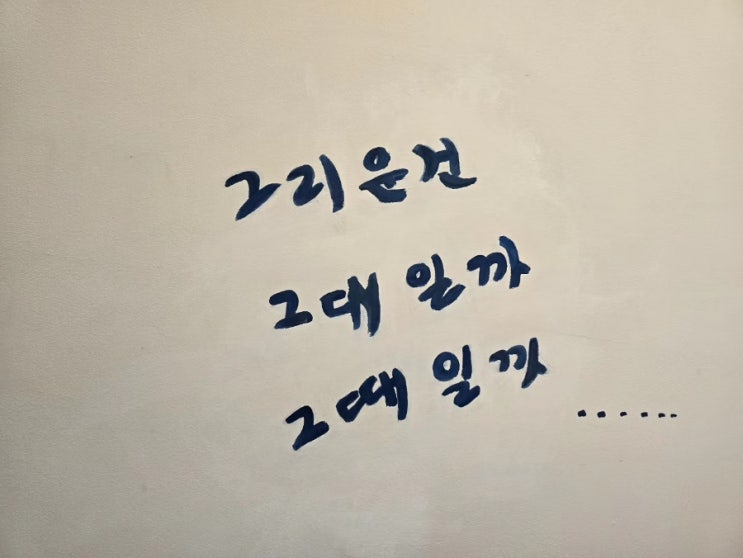 그리운건
그대 일까
그때 일까
......